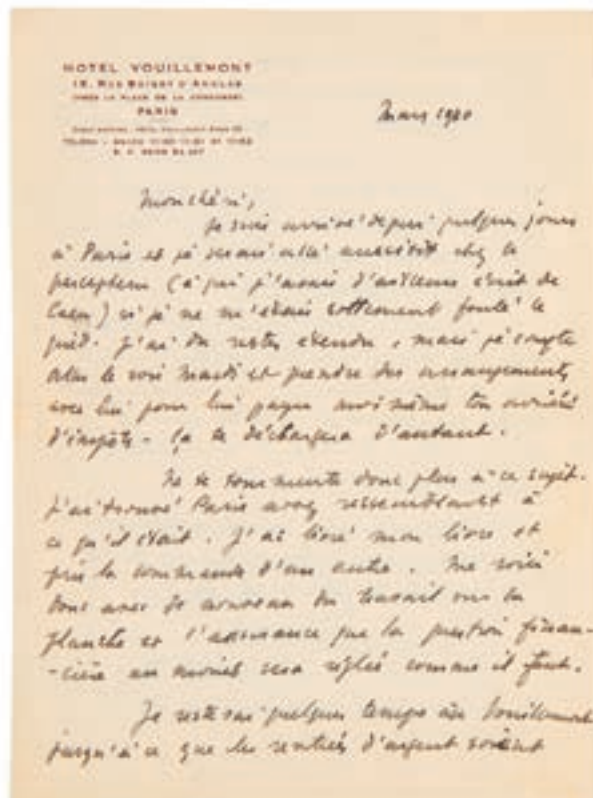 HOTEL VOUILLEMONT
15, RUE BOISSY D'ANGLAS
(PRÈS LA PLACE DE LA CONCORDE)
PARIS
Mars 19
Mon chéri,
Je suis arrivé depuis quelques jours
à Paris et je serais allé aussitôt chez le
percepteur (à qui j'avais d'ailleurs écrit de
Caen) si je ne m'étais sottement foulé le
pied. J'ai dû rester étendu, mais je compte
aller le voir Mardi et prendre des arrangements
avec lui pour lui payer moi-même ton arriéré
d'impôts. Ça te déchargera d'autant.
Ne te tourmente donc plus à ce sujet.
J'ai trouvé Paris assez ressemblant à
ce qu'il était. J'ai livré mon livre et
pris la commande d'un autre. Me voici
donc avec de nouveau du travail sur la
planche et l'assurance que la question finan-
-cière au moins sera réglée comme il faut.
Je reste quelque temps au Vouillemont
jusqu'à ce que les rentrées d'argent soient